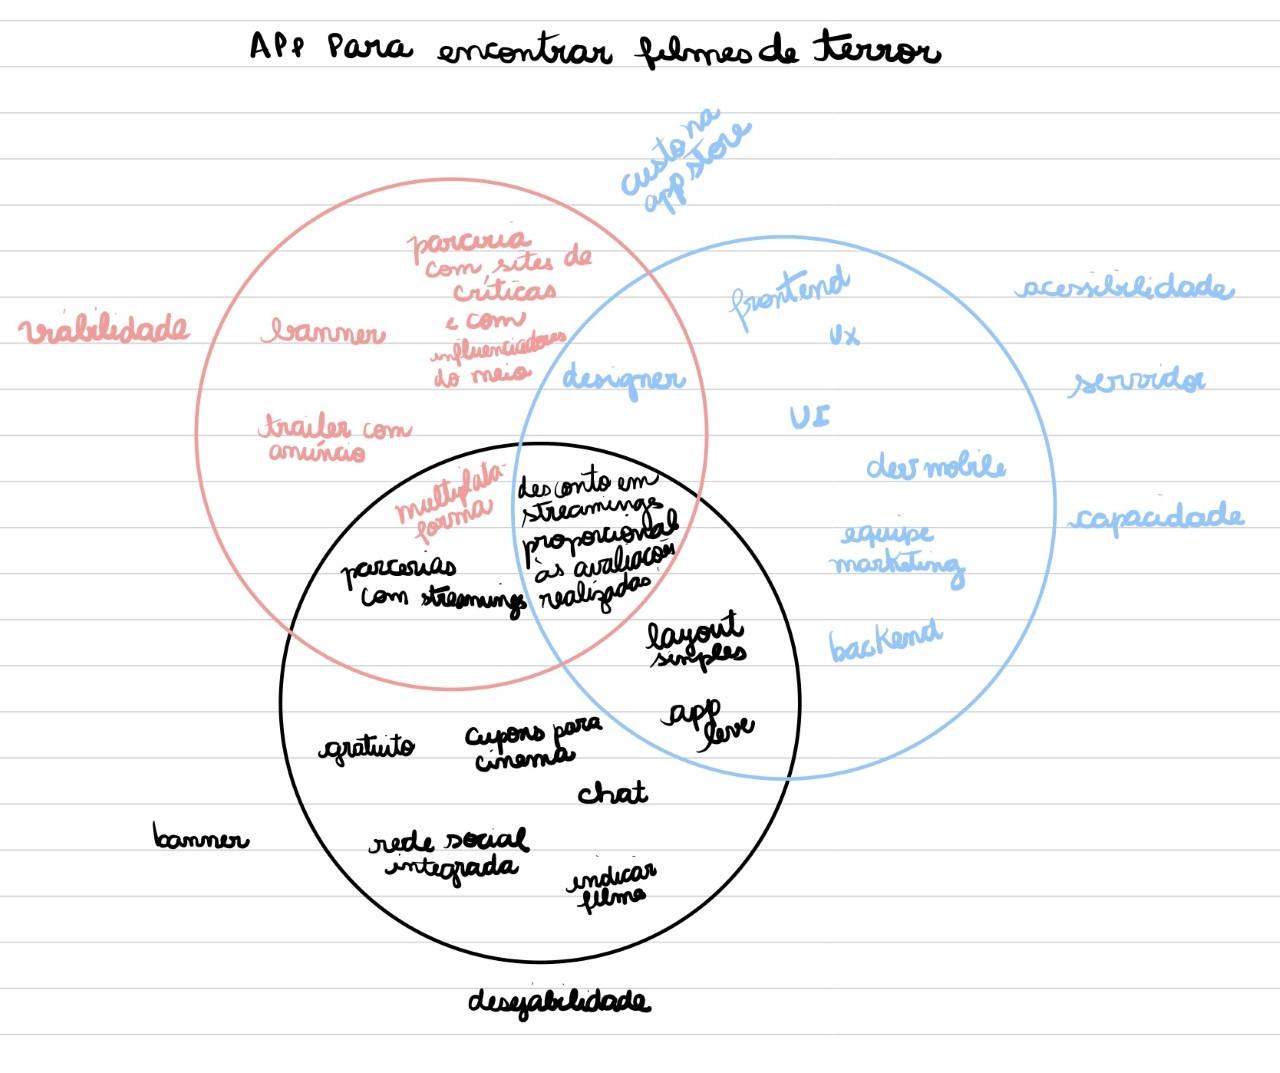 APP Para encontrar filmes de terror
custo na
app store
parceria
com sites de
críticas
e com
influenciadores
do meio
viabilidade
banner
trailer com
anúncio
multiplata
forma
designer
frontend
UX
UI
dev mobile
equipe
marketing
backend
acessibilidade
servidor
capacidade
desconto em
streamings
proporcional
às avaliações
realizadas
parcerias
com streamings
layout
simples
app
leve
gratuito
cupons para
cinema
chat
rede social
integrada
indicar
filme
banner
desejabilidade